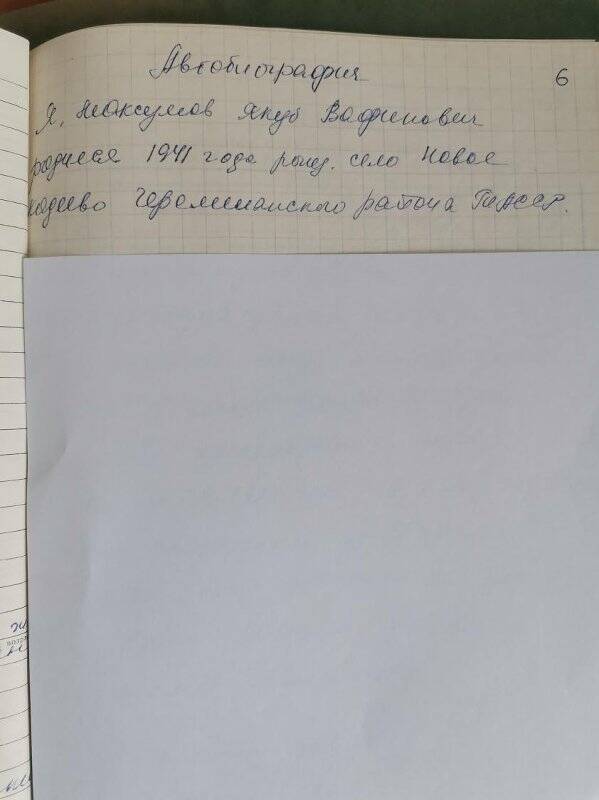 Автобиография
6
Я, Максумов Якуб Вафинович
родился 1941 года рожд. село Новое
Кадеево Черемшанского района ТАССР.